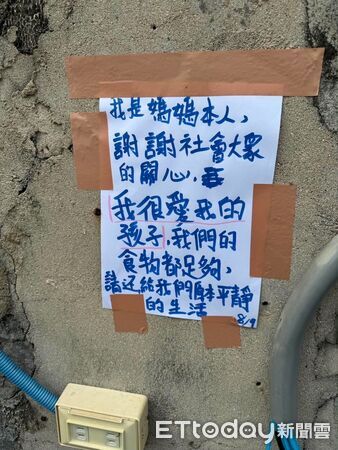 我是媽媽本人，
謝謝社會大眾
的關心，
我很愛我的
孩子，我們的
食物都足夠，
請还給我們原本平靜
的生活
8/9
ETtoday新聞雲